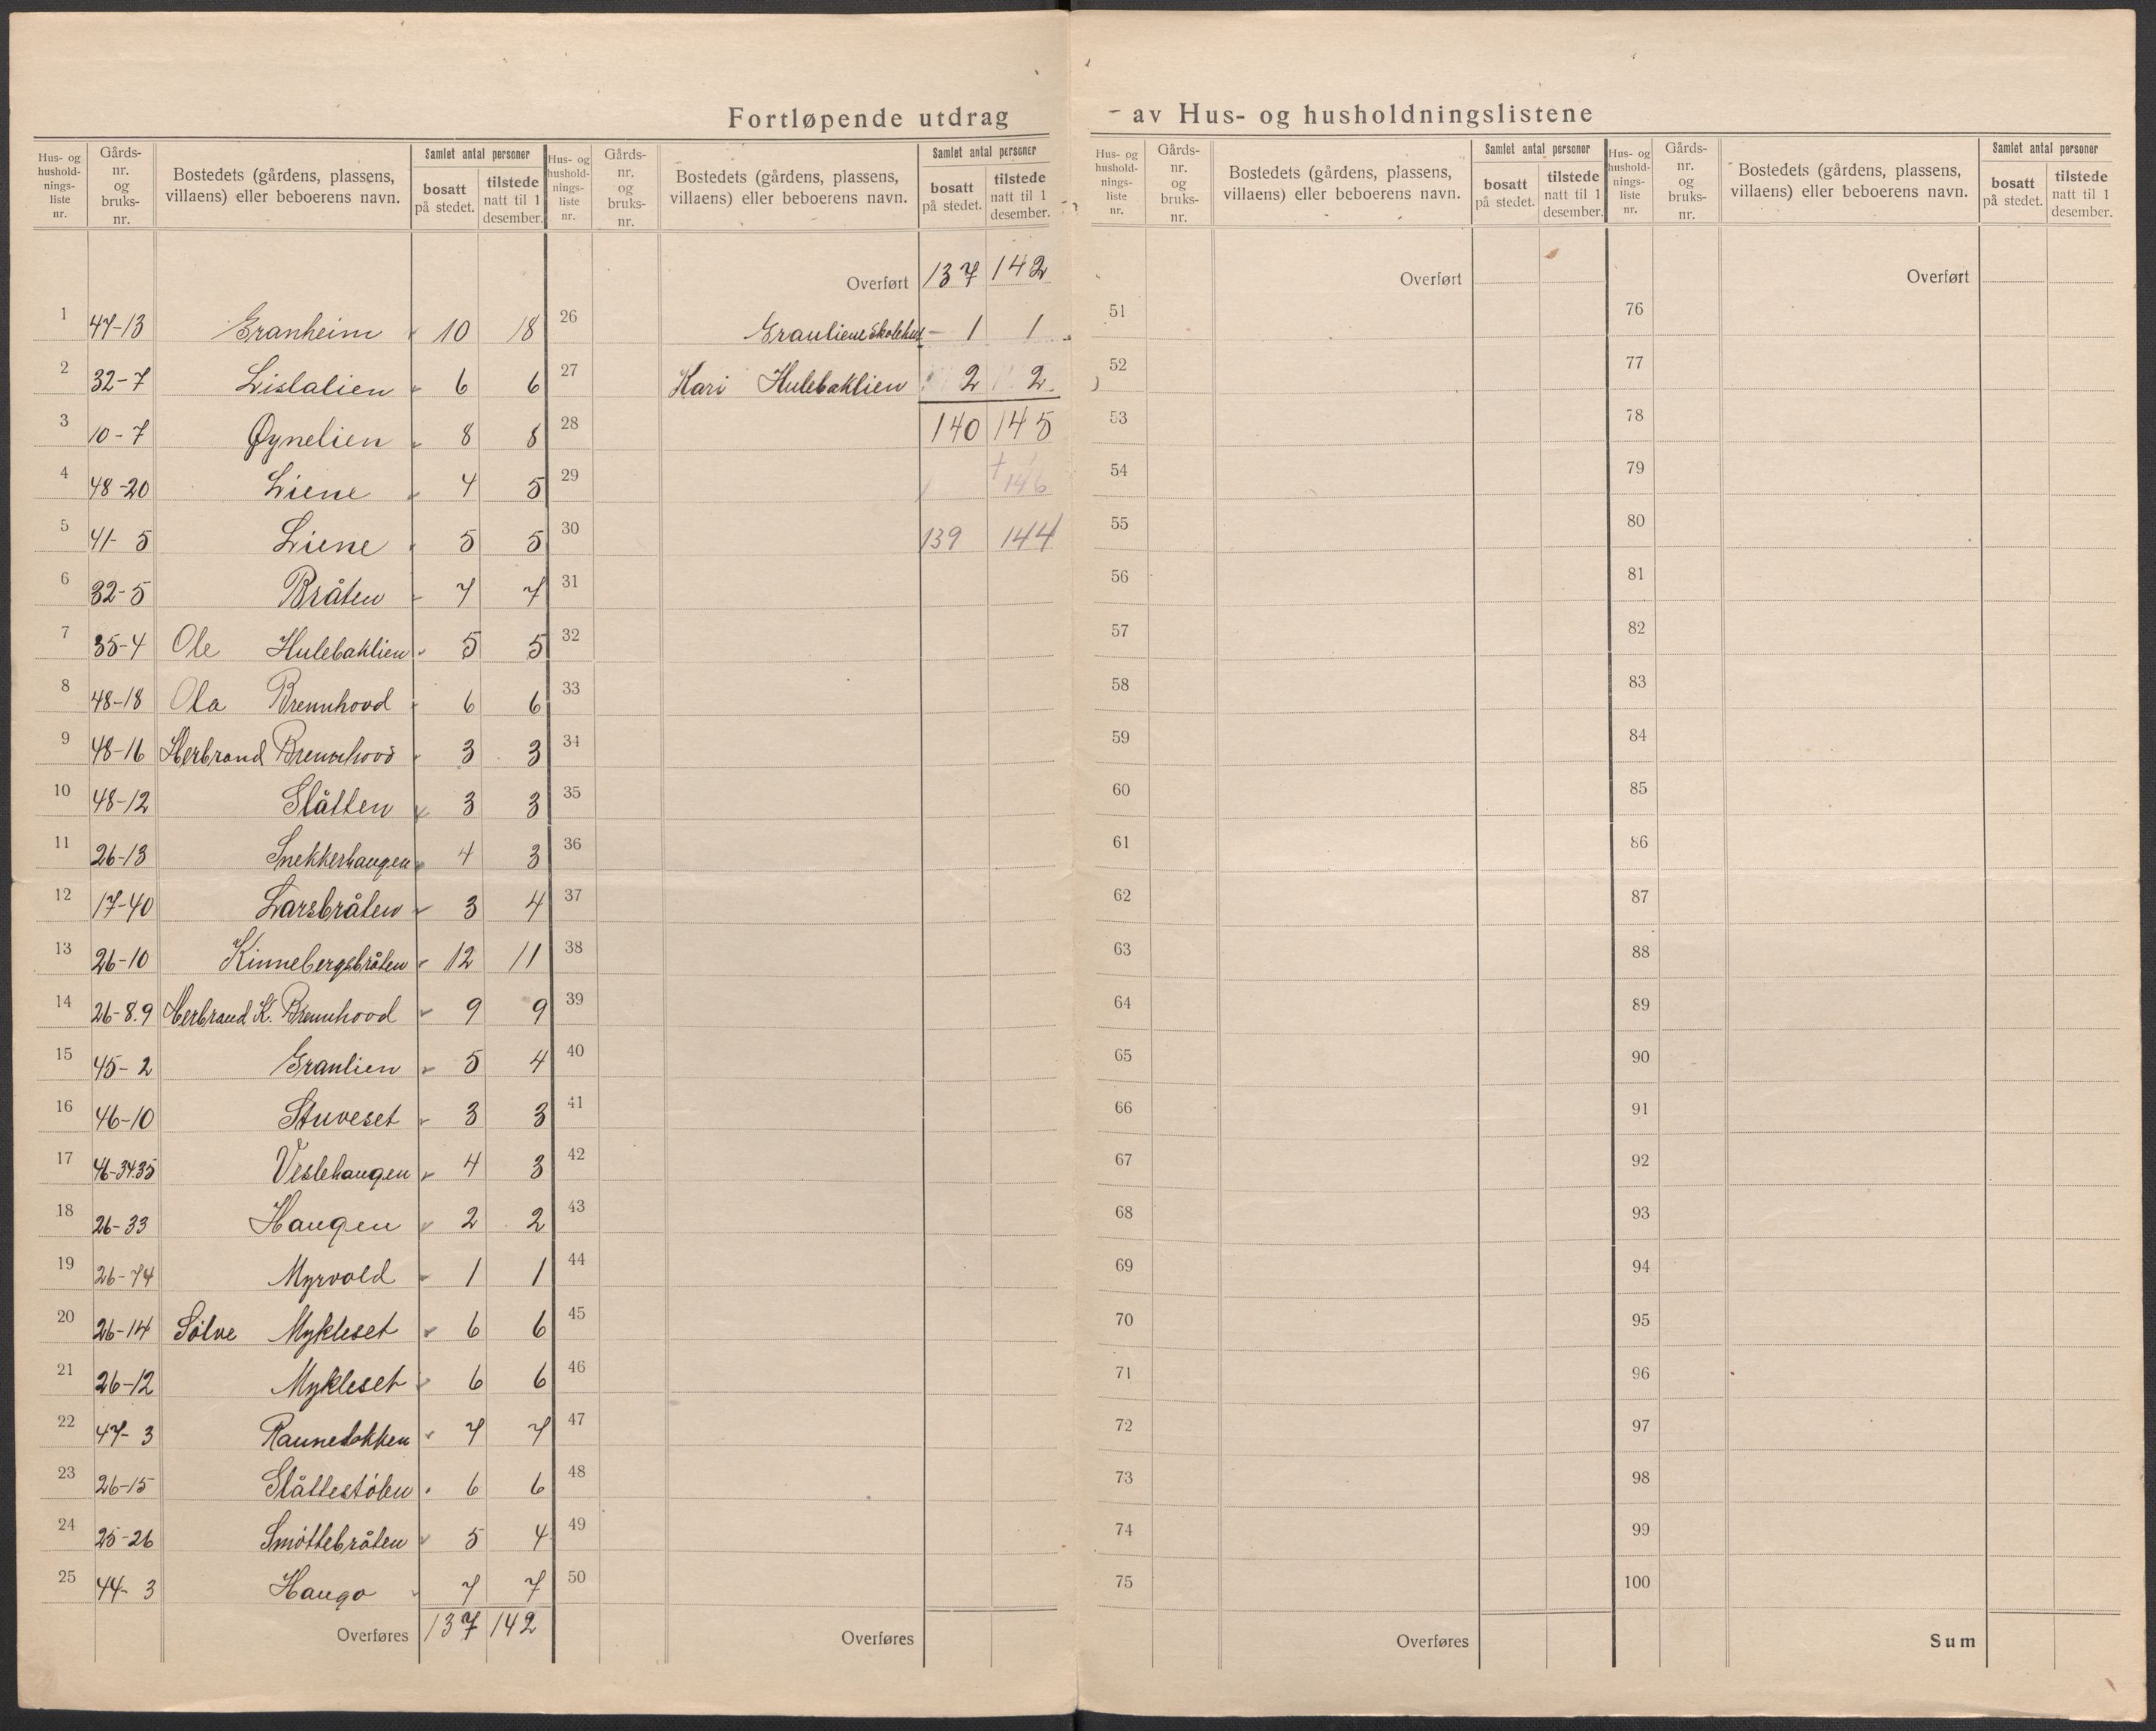 Fortløpende utdrag - av Hus- og husholdningslistene
Hus- og hushold-nings-liste nr. Gårds-nr. og bruks-nr. Bostedets (gårdens, plassens, villaens) eller beboerens navn. Samlet antal personer bosatt på stedet. tilstede natt til 1 desember.
1 47-13 Granheim 10 18
2 32-7 Lislalien 6 6
3 10-7 Øynelien 8 8
4 48-20 Liene 4 5
5 41-5 Liene 5 5
6 32-5 Bråten 7 7
7 35-4 Ole Hulebaklien 5 5
8 48-18 Ola Brennhovd 6 6
9 48-16 Herbrand Brennhovd 3 3
10 48-12 Slåtten 3 3
11 26-13 Snekkerhaugen 4 3
12 17-40 Larsbråten 3 4
13 26-10 Kinnebergsbråten 12 11
14 26-8.9 Herbrand K. Brennhovd 9 9
15 45-2 Granlien 5 4
16 46-10 Stuveset 3 3
17 46-34.35 Veslehaugen 4 3
18 26-33 Haugen 2 2
19 26-74 Myrvold 1 1
20 26-14 Sölve Mykleset 6 6
21 26-12 Mykleset 6 6
22 47-3 Raunedokken 7 7
23 26-15 Slåttestölen 6 6
24 25-26 Smöttebråten 5 4
25 44-3 Haugo 7 7
Overføres 137 142
Hus- og hushold-nings-liste nr. Gårds-nr. og bruks-nr. Bostedets (gårdens, plassens, villaens) eller beboerens navn. Samlet antal personer bosatt på stedet. tilstede natt til 1 desember.
Overført 137 142
26 Grauliene Skolehus - 1 1
27 Kari Hulebaklien 2 2.
28 140 145
29 146
30 139 144
31
32
33
34
35
36
37
38
39
40
41
42
43
44
45
46
47
48
49
50
Overføres
Hus- og hushold-nings-liste nr. Gårds-nr. og bruks-nr. Bostedets (gårdens, plassens, villaens) eller beboerens navn. Samlet antal personer bosatt på stedet. tilstede natt til 1 desember.
Overført
51
52
53
54
55
56
57
58
59
60
61
62
63
64
65
66
67
68
69
70
71
72
73
74
75
Overføres
Hus- og hushold-nings-liste nr. Gårds-nr. og bruks-nr. Bostedets (gårdens, plassens, villaens) eller beboerens navn. Samlet antal personer bosatt på stedet. tilstede natt til 1 desember.
Overført
76
77
78
79
80
81
82
83
84
85
86
87
88
89
90
91
92
93
94
95
96
97
98
99
100
Sum